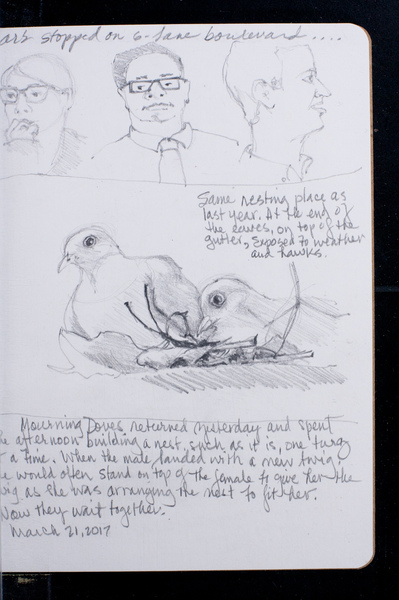 cars stopped on 6-lane boulevard ....
Same nesting place as
last year. At the end of
the eaves, on top of the
gutter, exposed to weather
and hawks.
Mourning Doves returned yesterday and spent
the afternoon building a nest, such as it is, one twig
at a time. When the male landed with a new twig
he would often stand on top of the female to give her the
twig as she was arranging the nest to fit her.
Now they wait together.
March 21, 2017